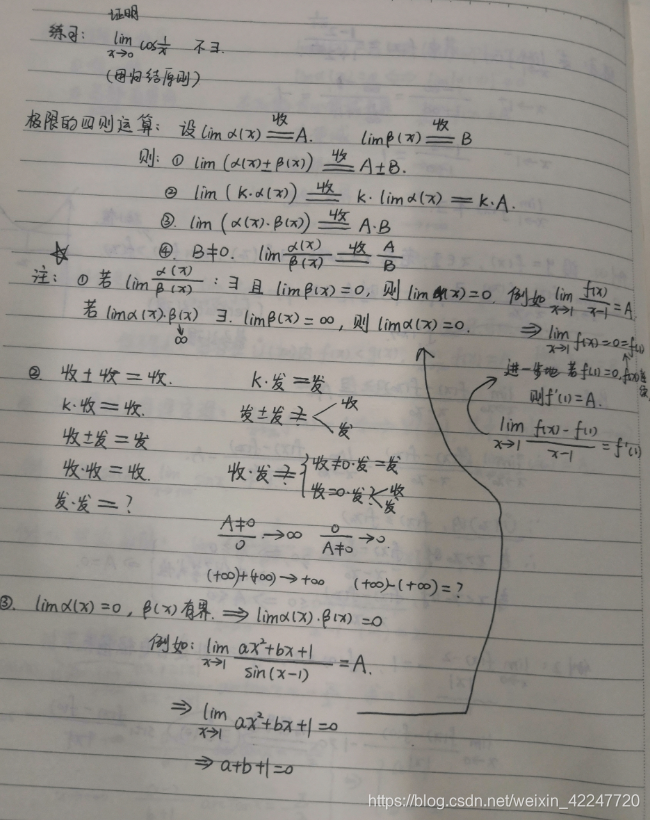 证明
练习: lim x→0 cos 1/x 不∃.
(用归结原则)
极限的四则运算: 设 lim α(x) 收== A. lim β(x) 收== B
则: ① lim (α(x) ± β(x)) 收== A±B.
② lim (k·α(x)) 收== k·lim α(x) = k·A.
③. lim (α(x)·β(x)) 收== A·B
☆ ④. B≠0. lim α(x)/β(x) 收== A/B
注: ① 若 lim α(x)/β(x) : ∃ 且 lim β(x)=0, 则 lim α(x)=0. 例如 lim x→1 f(x)/x-1 = A.
若 lim α(x)·β(x) ∃. lim β(x)=∞, 则 lim α(x)=0. ⇒ lim x→1 f(x)=0=f(1)
↓
∞
进一步地 若 f(1)=0, f(x)
则 f'(1)=A.
lim x→1 f(x)-f(1)/x-1 = f'(1)
② 收±收=收. k·发=发
k·收=收. 发±发 ≠ < 收 发
收±发=发
收·收=收. 收·发 ≠ { 收≠0·发=发 收=0·发 < 收 发
发·发=?
A≠0/0 →∞ 0/A≠0 →0.
(+∞)+(+∞)→+∞ (+∞)-(+∞)=?
③. lim α(x)=0, β(x)有界. ⇒ lim α(x)·β(x)=0
例如: lim x→1 ax²+bx+1/sin(x-1) = A.
⇒ lim x→1 ax²+bx+1=0
⇒ a+b+1=0
https://blog.csdn.net/weixin_42247720